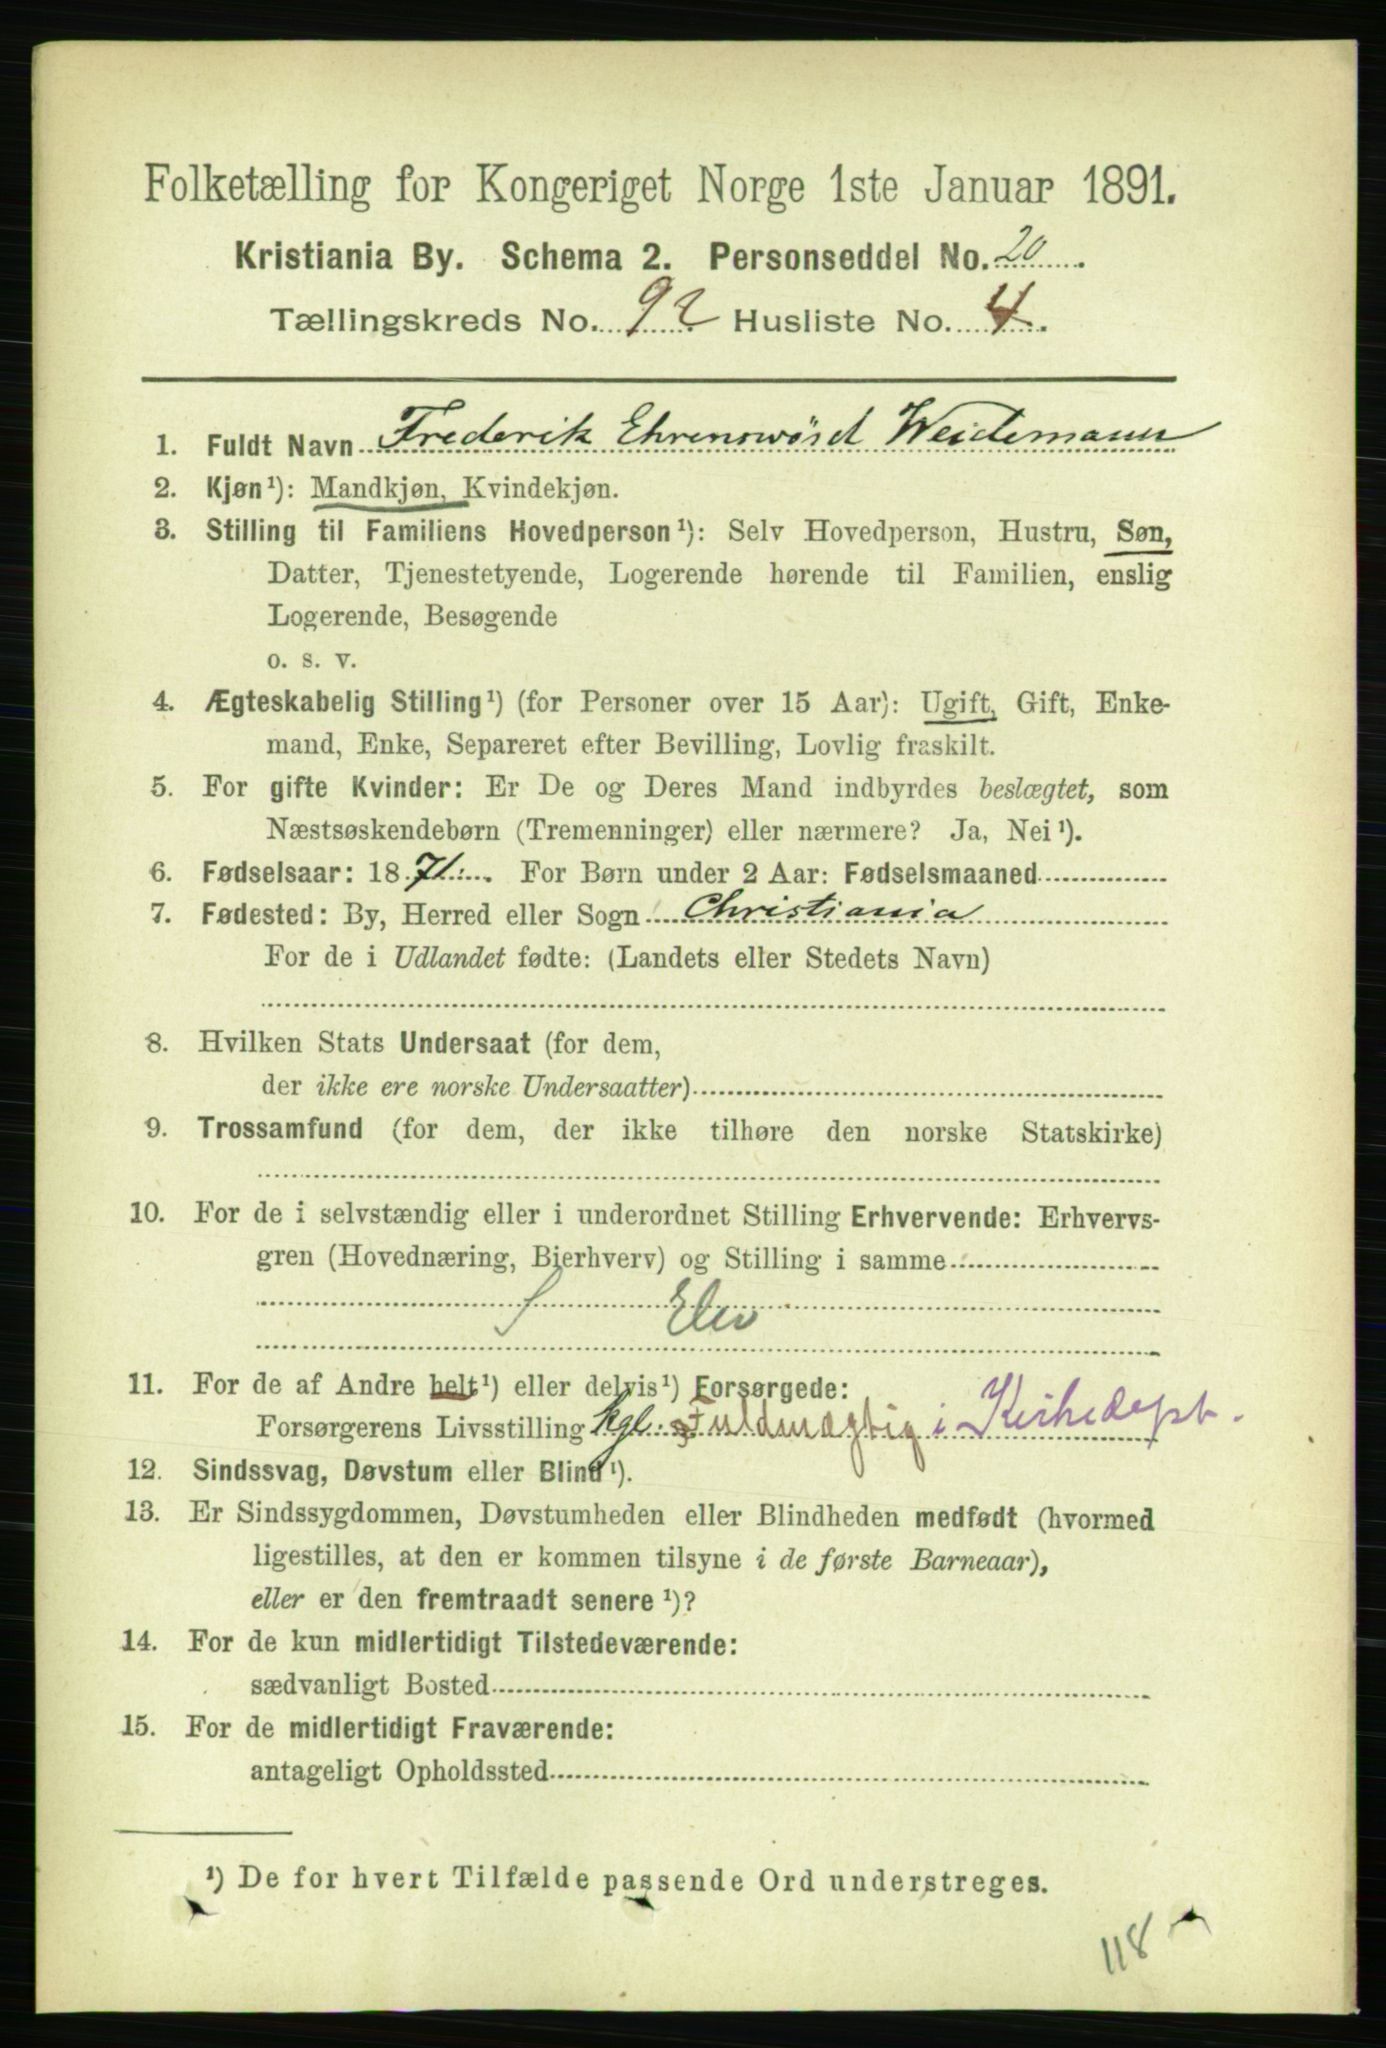 Folketælling for Kongeriget Norge 1ste Januar 1891.
Kristiania By. Schema 2. Personseddel No. 20.
Tællingskreds No. 92 Husliste No. 4.
1. Fuldt Navn Frederik Ehrenswörd Weidemann
2. Kjøn¹): Mandkjøn, Kvindekjøn.
3. Stilling til Familiens Hovedperson¹): Selv Hovedperson, Hustru, Søn,
Datter, Tjenestetyende, Logerende hørende til Familien, enslig
Logerende, Besøgende
o. s. v.
4. Ægteskabelig Stilling¹) (for Personer over 15 Aar): Ugift, Gift, Enke-
mand, Enke, Separeret efter Bevilling, Lovlig fraskilt.
5. For gifte Kvinder: Er De og Deres Mand indbyrdes beslægtet, som
Næstsøskendebørn (Tremenninger) eller nærmere? Ja, Nei¹).
6. Fødselsaar: 1871. For Børn under 2 Aar: Fødselsmaaned
7. Fødested: By, Herred eller Sogn Christiania
For de i Udlandet fødte: (Landets eller Stedets Navn)
8. Hvilken Stats Undersaat (for dem,
der ikke ere norske Undersaatter)
9. Trossamfund (for dem, der ikke tilhøre den norske Statskirke)
10. For de i selvstændig eller i underordnet Stilling Erhvervende: Erhvervs-
gren (Hovednæring, Bierhverv) og Stilling i samme
Elev
11. For de af Andre helt¹) eller delvis¹) Forsørgede:
Forsørgerens Livsstilling kgl. Fuldmægtig i Kirkedept.
12. Sindssvag, Døvstum eller Blind¹).
13. Er Sindssygdommen, Døvstumheden eller Blindheden medfødt (hvormed
ligestilles, at den er kommen tilsyne i de første Barneaar),
eller er den fremtraadt senere¹)?
14. For de kun midlertidigt Tilstedeværende:
sædvanligt Bosted
15. For de midlertidigt Fraværende:
antageligt Opholdssted
¹) De for hvert Tilfælde passende Ord understreges.
118